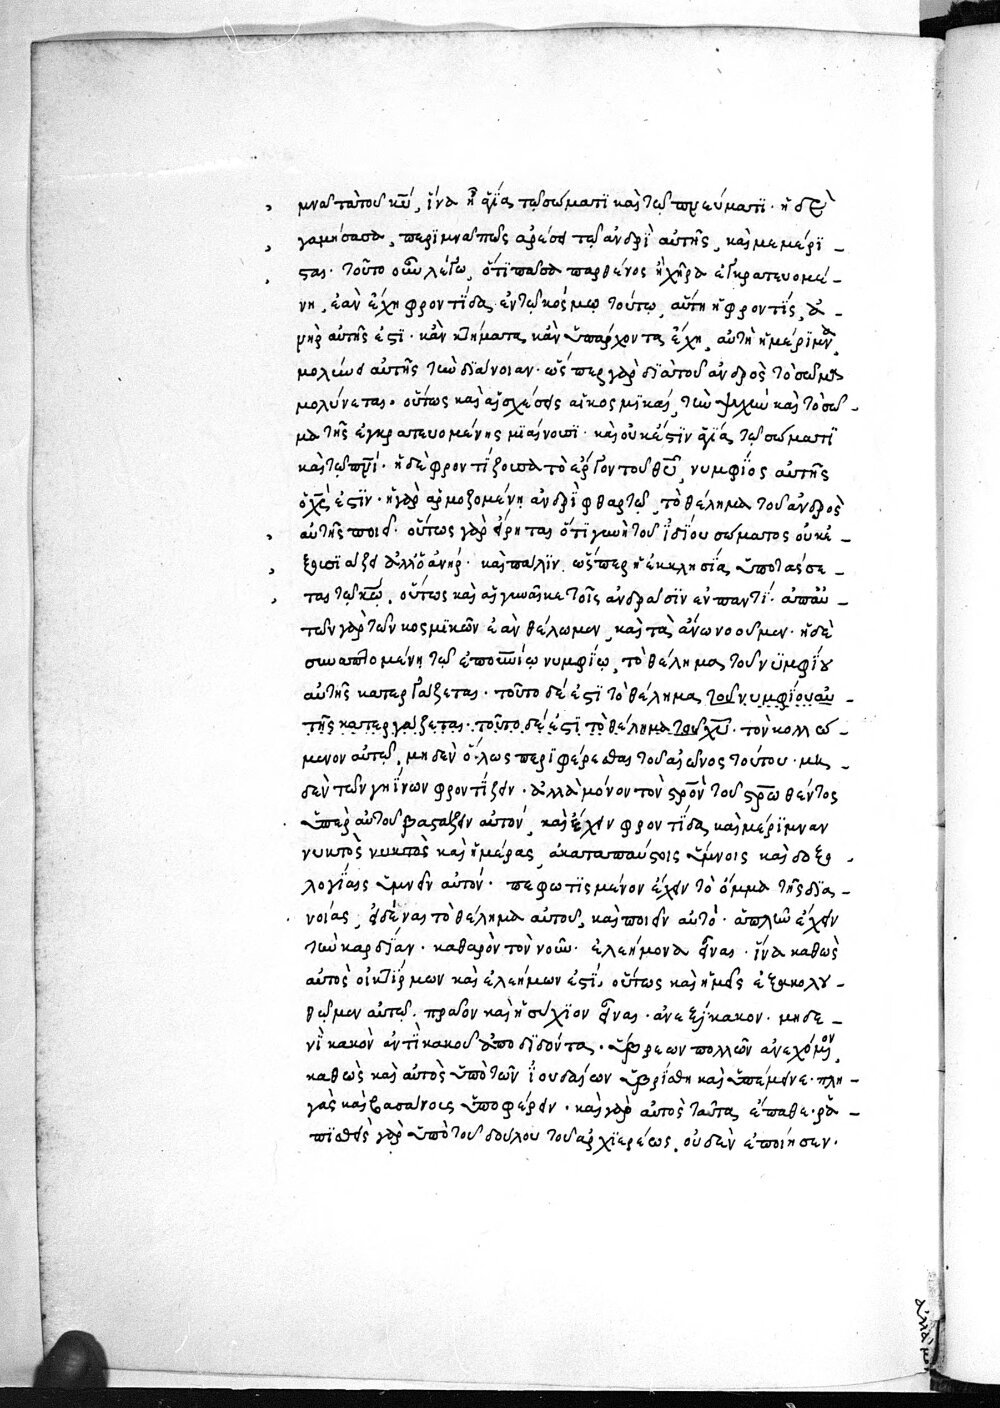 μνᾷ τὰ τοῦ κῡ, ἵνα ᾖ ἁγία τῷ σώματι καὶ τῷ πνεύματι· ἡ δὲ
γαμήσασα, περιμνᾷ πῶς ἀρέσει τῷ ἀνδρὶ αὐτῆς, καὶ μεμέρι-
σται· τοῦτο οὖν λέγω, ὅτι πᾶσα παρθένος ἢ χήρα ἐγκρατευομέ-
νη, ἐὰν ἔχῃ φροντίδα ἐν τῷ κόσμῳ τούτῳ, αὕτη ἡ φροντὶς, ἀ-
νὴρ αὐτῆς ἐστι· κἂν κτήματα, κἂν ὑπάρχοντα ἔχῃ, αὐτὴ ἡ μέριμνα
μολύνει αὐτῆς τὴν διάνοιαν· ὥσπερ γὰρ διὰ τοῦ ἀνδρὸς τὸ σῶμα
μολύνεται· οὕτως καὶ αἱ σχέσεις αἱ κοσμικαί, τὴν ψυχὴν καὶ τὸ σῶ-
μα τῆς ἐγκρατευομένης μιαίνουσι· καὶ οὐκ ἔστιν ἁγία τῷ σώματι
καὶ τῷ πνῑ· ἡ δὲ φροντίζουσα τὸ ἔργον τοῦ θῡ, νυμφίος αὐτῆς
ὁ χς̄ ἐστιν· ἡ γὰρ ἁρμοζομένη ἀνδρὶ φθαρτῷ, τὸ θέλημα τοῦ ἀνδρὸς
αὐτῆς ποιεῖ· οὕτως γὰρ εἴρηται ὅτι γυνὴ τοῦ ἰδίου σώματος οὐκ ἐ-
ξουσιάζει ἀλλ' ὁ ἀνήρ· καὶ πάλιν ὥσπερ ἡ ἐκκλησία, ὑποτάσσε-
ται τῷ κῶ, οὕτως καὶ αἱ γυναῖκε τοῖς ἀνδράσιν ἐν παντί· ἀπὸ αὐ-
τῶν γὰρ τῶν κοσμικῶν ἐὰν θέλωμεν, καὶ τὰ ἄνω νοοῦμεν· ἡ δὲ
συναπτομένη τῷ ἐπουνίῳ νυμφίῳ, τὸ θέλημα τοῦ νυμφίου
αὐτῆς κατεργάζεται· τοῦτο δέ ἐστι τὸ θέλημα τοῦ νυμφίου αὐ-
τῆς κατεργάζεται· τοῦτο δέ ἐστι τὸ θέλημα τοῦ χῡ· τὸν κολλώ-
μενον αὐτῷ, μηδὲν ὅλως περιφέρεσθαι τοῦ αἰῶνος τούτου· μη-
δὲν τῶν γηΐνων φροντίζειν· ἀλλὰ μόνον τὸν στρον̄ τοῦ στρωθέντος
ὑπὲρ αὐτοῦ βαστάζειν αὐτόν, καὶ ἔχειν φροντίδα καὶ μέριμναν
νυκτὸς νυκτὸς καὶ ἡμέρας, ἀκαταπαύστοις ὕμνοις καὶ δοξο-
λογίαις ὑμνεῖν αὐτόν· πεφωτισμένον ἔχειν τὸ ὄμμα τῆς δια-
νοίας, εἰδέναι τὸ θέλημα αὐτοῦ, καὶ ποιεῖν αὐτό· ἁπλῆν ἔχειν
τὴν καρδίαν· καθαρὸν τὸν νοῦν· ἐλεήμονα εἶναι· ἵνα καθὼς
αὐτὸς οἰκτίρμων καὶ ἐλεήμων ἐστί, οὕτως καὶ ἡμεῖς ἐξακολου-
θῶμεν αὐτῷ· πρᾶον καὶ ἡσύχιον εἶναι· ἀνεξίκακον· μηδε-
νὶ κακὸν ἀντὶ κακοῦ ἀποδιδόνται· ὕβρεων πολλῶν ἀνεχόμενον,
καθὼς καὶ αὐτὸς ὑπὸ τῶν ἰουδαίων ὑβρίσθη καὶ ὑπέμεινε· πλη-
γὰς καὶ βασάνοις ὑποφέρειν· καὶ γὰρ αὐτὸς ταῦτα ἔπαθε· ῥα-
πισθεὶς γὰρ ὑπὸ τοῦ δούλου τοῦ ἀρχιερέως, οὐδὲν ἐποίησεν·